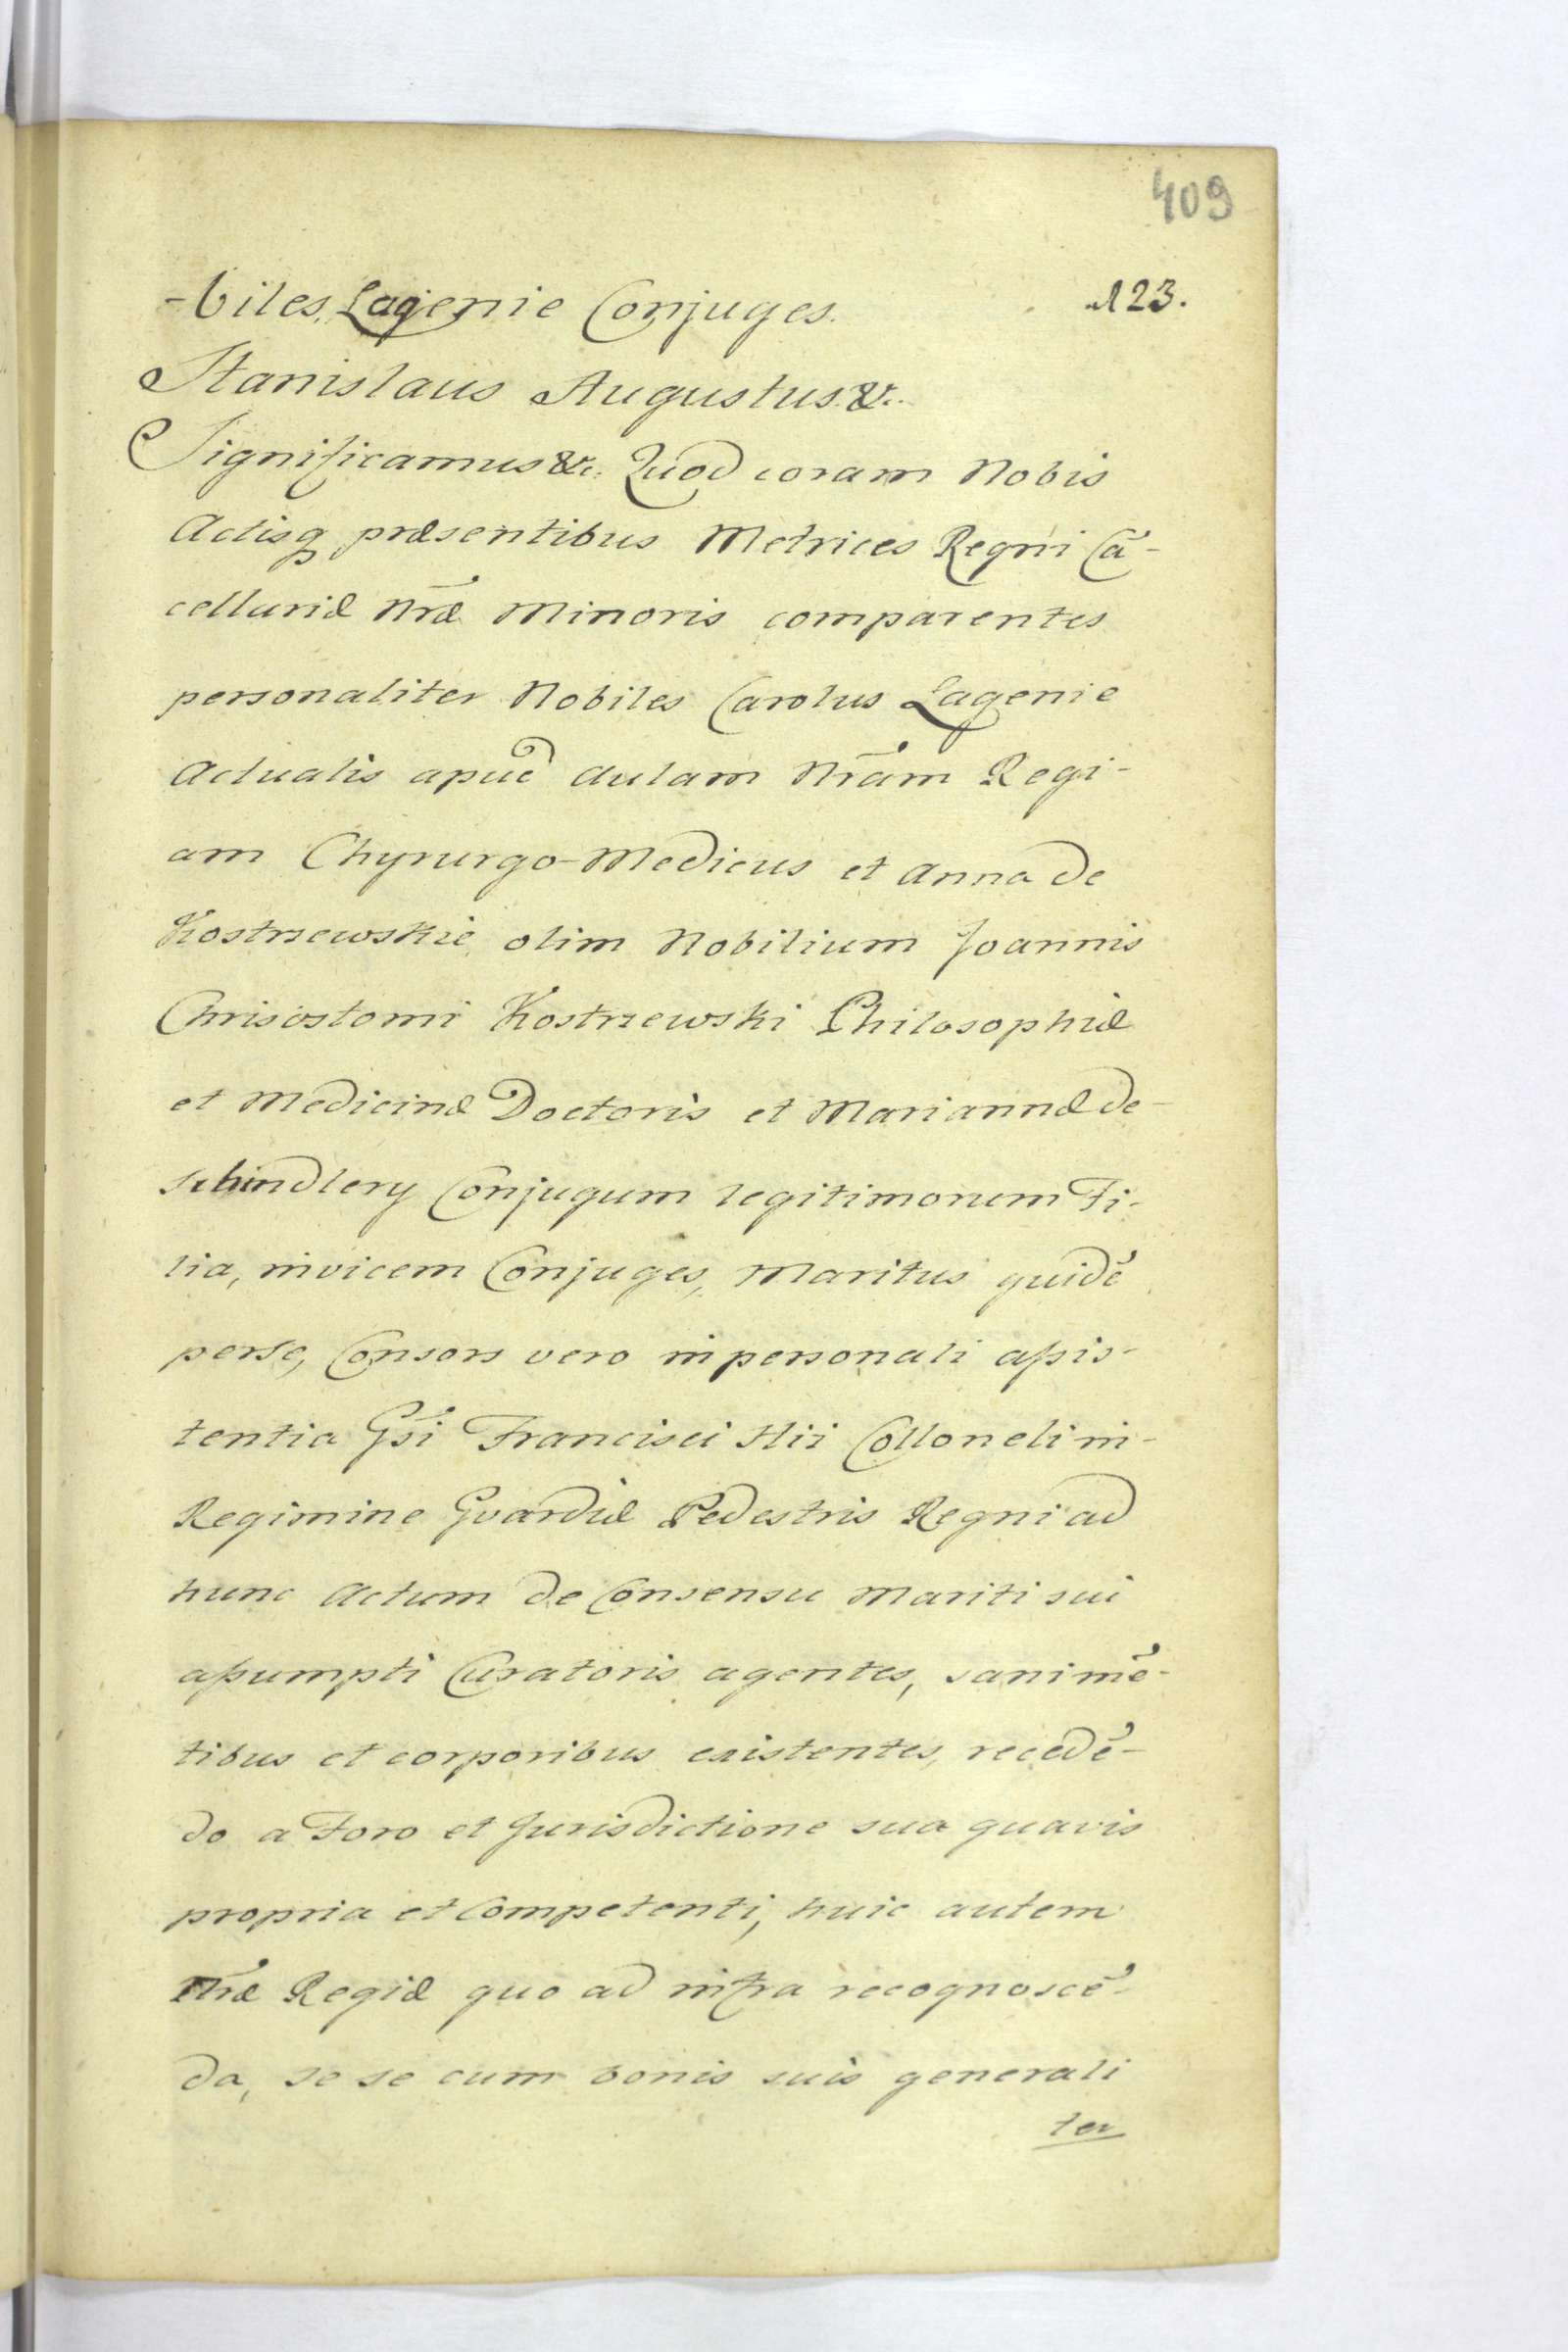 409
-biles Lagenie Conjuges. 123.
Stanislaus Augustus &c.
Significamus &c. Quod coram Nobis
Actisq̃ præsentibus Metrices Regni Cã-
cellariæ Nræ̃ Minoris comparentes
personaliter Nobiles Carolus Lagenie
Actualis apud Aulam Nrãm Regi-
am Chyrurgo-Medicus et Anna de
Kostrzewskie olim Nobilium Joannis
Chrisostomi Kostrzewski Philosophiæ
et Medicinæ Doctoris et Mariannæ de-
Schindlery Conjugum legitimorum Fi-
lia, invicem Conjuges, Maritus quidẽ
perse, Consors vero in personali assis-
tentia Gsĩ Francisci Hii Colloneli in-
Regimine Gvardiæ Pedestris Regni ad
hunc Actum de Consensu Mariti sui
assumpti Curatoris agentes, sani mẽ-
tibus et corporibus existentes, recedẽ-
do a Foro et Jurisdictione sua quavis
propria et Competenti, huic autem
Nræ̃ Regiæ quo ad infra recognoscẽ-
da, se se cum bonis suis generali
ter